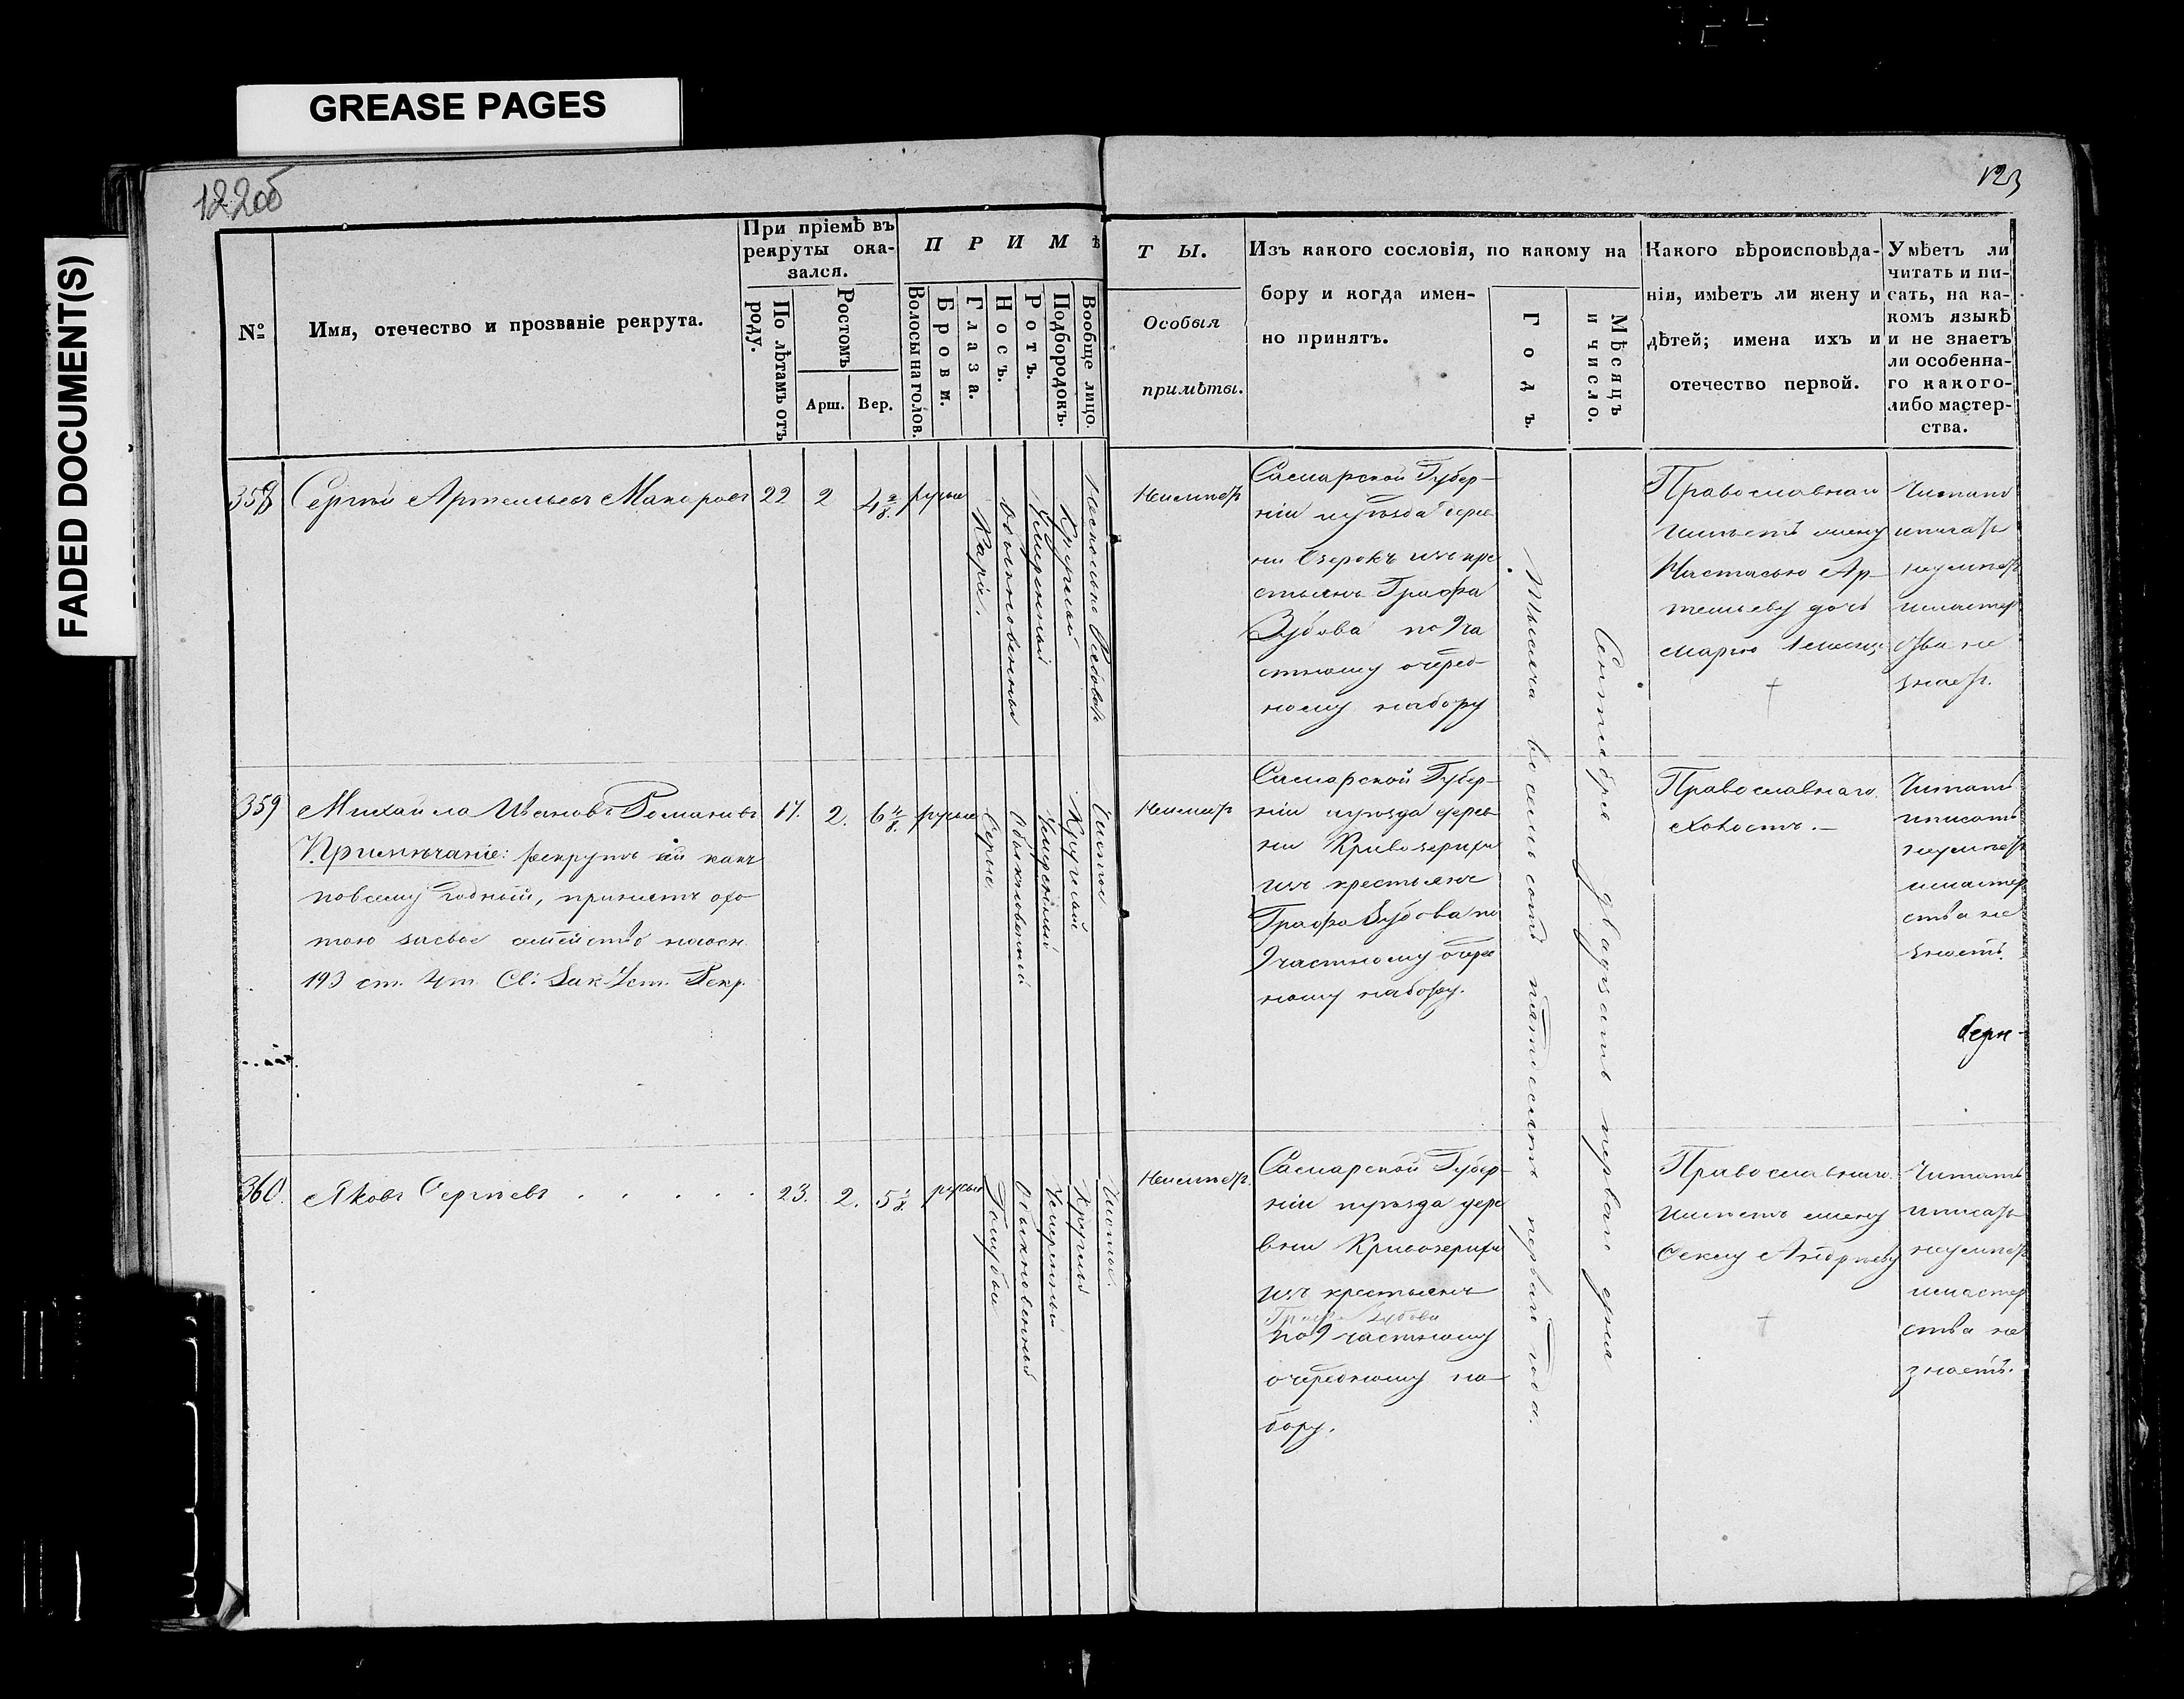 GREASE PAGES
FADED DOCUMENT(S)
122об
123
№
Имя, отечество и прозваніе рекрута.
При пріемѣ въ
рекруты ока-
зался.
По лѣтамъ отъ
роду.
Ростомъ
Арш.
Вер.
ПРИМѢ
Волосы на голов.
Брови.
Глаза.
Носъ.
Ротъ.
Подбородокъ.
Вообще лицо.
ТЫ.
Особыя
примѣты.
Изъ какого сословія, по какому на
бору и когда имен-
но принятъ.
Годъ.
Мѣсяцъ
и число.
Какого вѣроисповѣда-
нія, имѣетъ ли жену и
дѣтей; имена ихъ и
отечество первой.
Умѣетъ ли
читать и пи-
сать, на ка-
комъ языкѣ
и не знаетъ
ли особенна-
го какого-
либо мастер-
ства.
358
Сергѣй Артемьевъ Макаровъ
22
2
4 2/8.
русые
Карія.
Обыкновенный
Умѣренный
Круглый
Несколько Рябовато
Неимѣетъ
Самарской Губер-
ніи и уѣзда дерев
ни Озерокъ изъ кре
стьянъ Графа
Зубова по 9 ча
стному очеред-
ному набору
Тысяча восемьсотъ пятьдесятъ перваго года.
Сентября двадцать перваго дня
Православнаго
имѣетъ жену
Настасью Ар-
темьеву дочь
Марью
Читать
и писать
неумѣетъ
и мастер
ства не
знаетъ.
359
Михайла Ивановъ Романовъ
Примѣчаніе: рекрутъ сей какъ
по всему годный, принятъ охо
тою за свое семейство на осн.
193 ст. 4 т. Св. Зак. Уст. Рекр.
17.
2.
6 4/8.
русые
Серые
Обыкновенный
Умѣренный
Круглый
Чистое
Неимѣетъ
Самарской Губер-
ніи и уѣзда дерев
ни
изъ крестьянъ
Графа Зубова по
9 частному очеред
ному набору.
Православнаго.
Холостъ.-
Читать
и писать
неумѣетъ
и мастер
ства не
знаетъ.
360.
Яковъ Сергѣевъ . . . . .
23.
2.
5 1/8.
русые
Голубые
Обыкновенный
Умѣренный
Круглый
Чистое.
Неимѣетъ.
Самарской Губер-
ніи и уѣзда дере
вни
изъ крестьянъ
Графа Зубова
по 9 частному
очередному на-
бору.
Православнаго.
имѣетъ жену
Андрѣеву
Читать
и писать
неумѣетъ
и мастер
ства не
знаетъ.